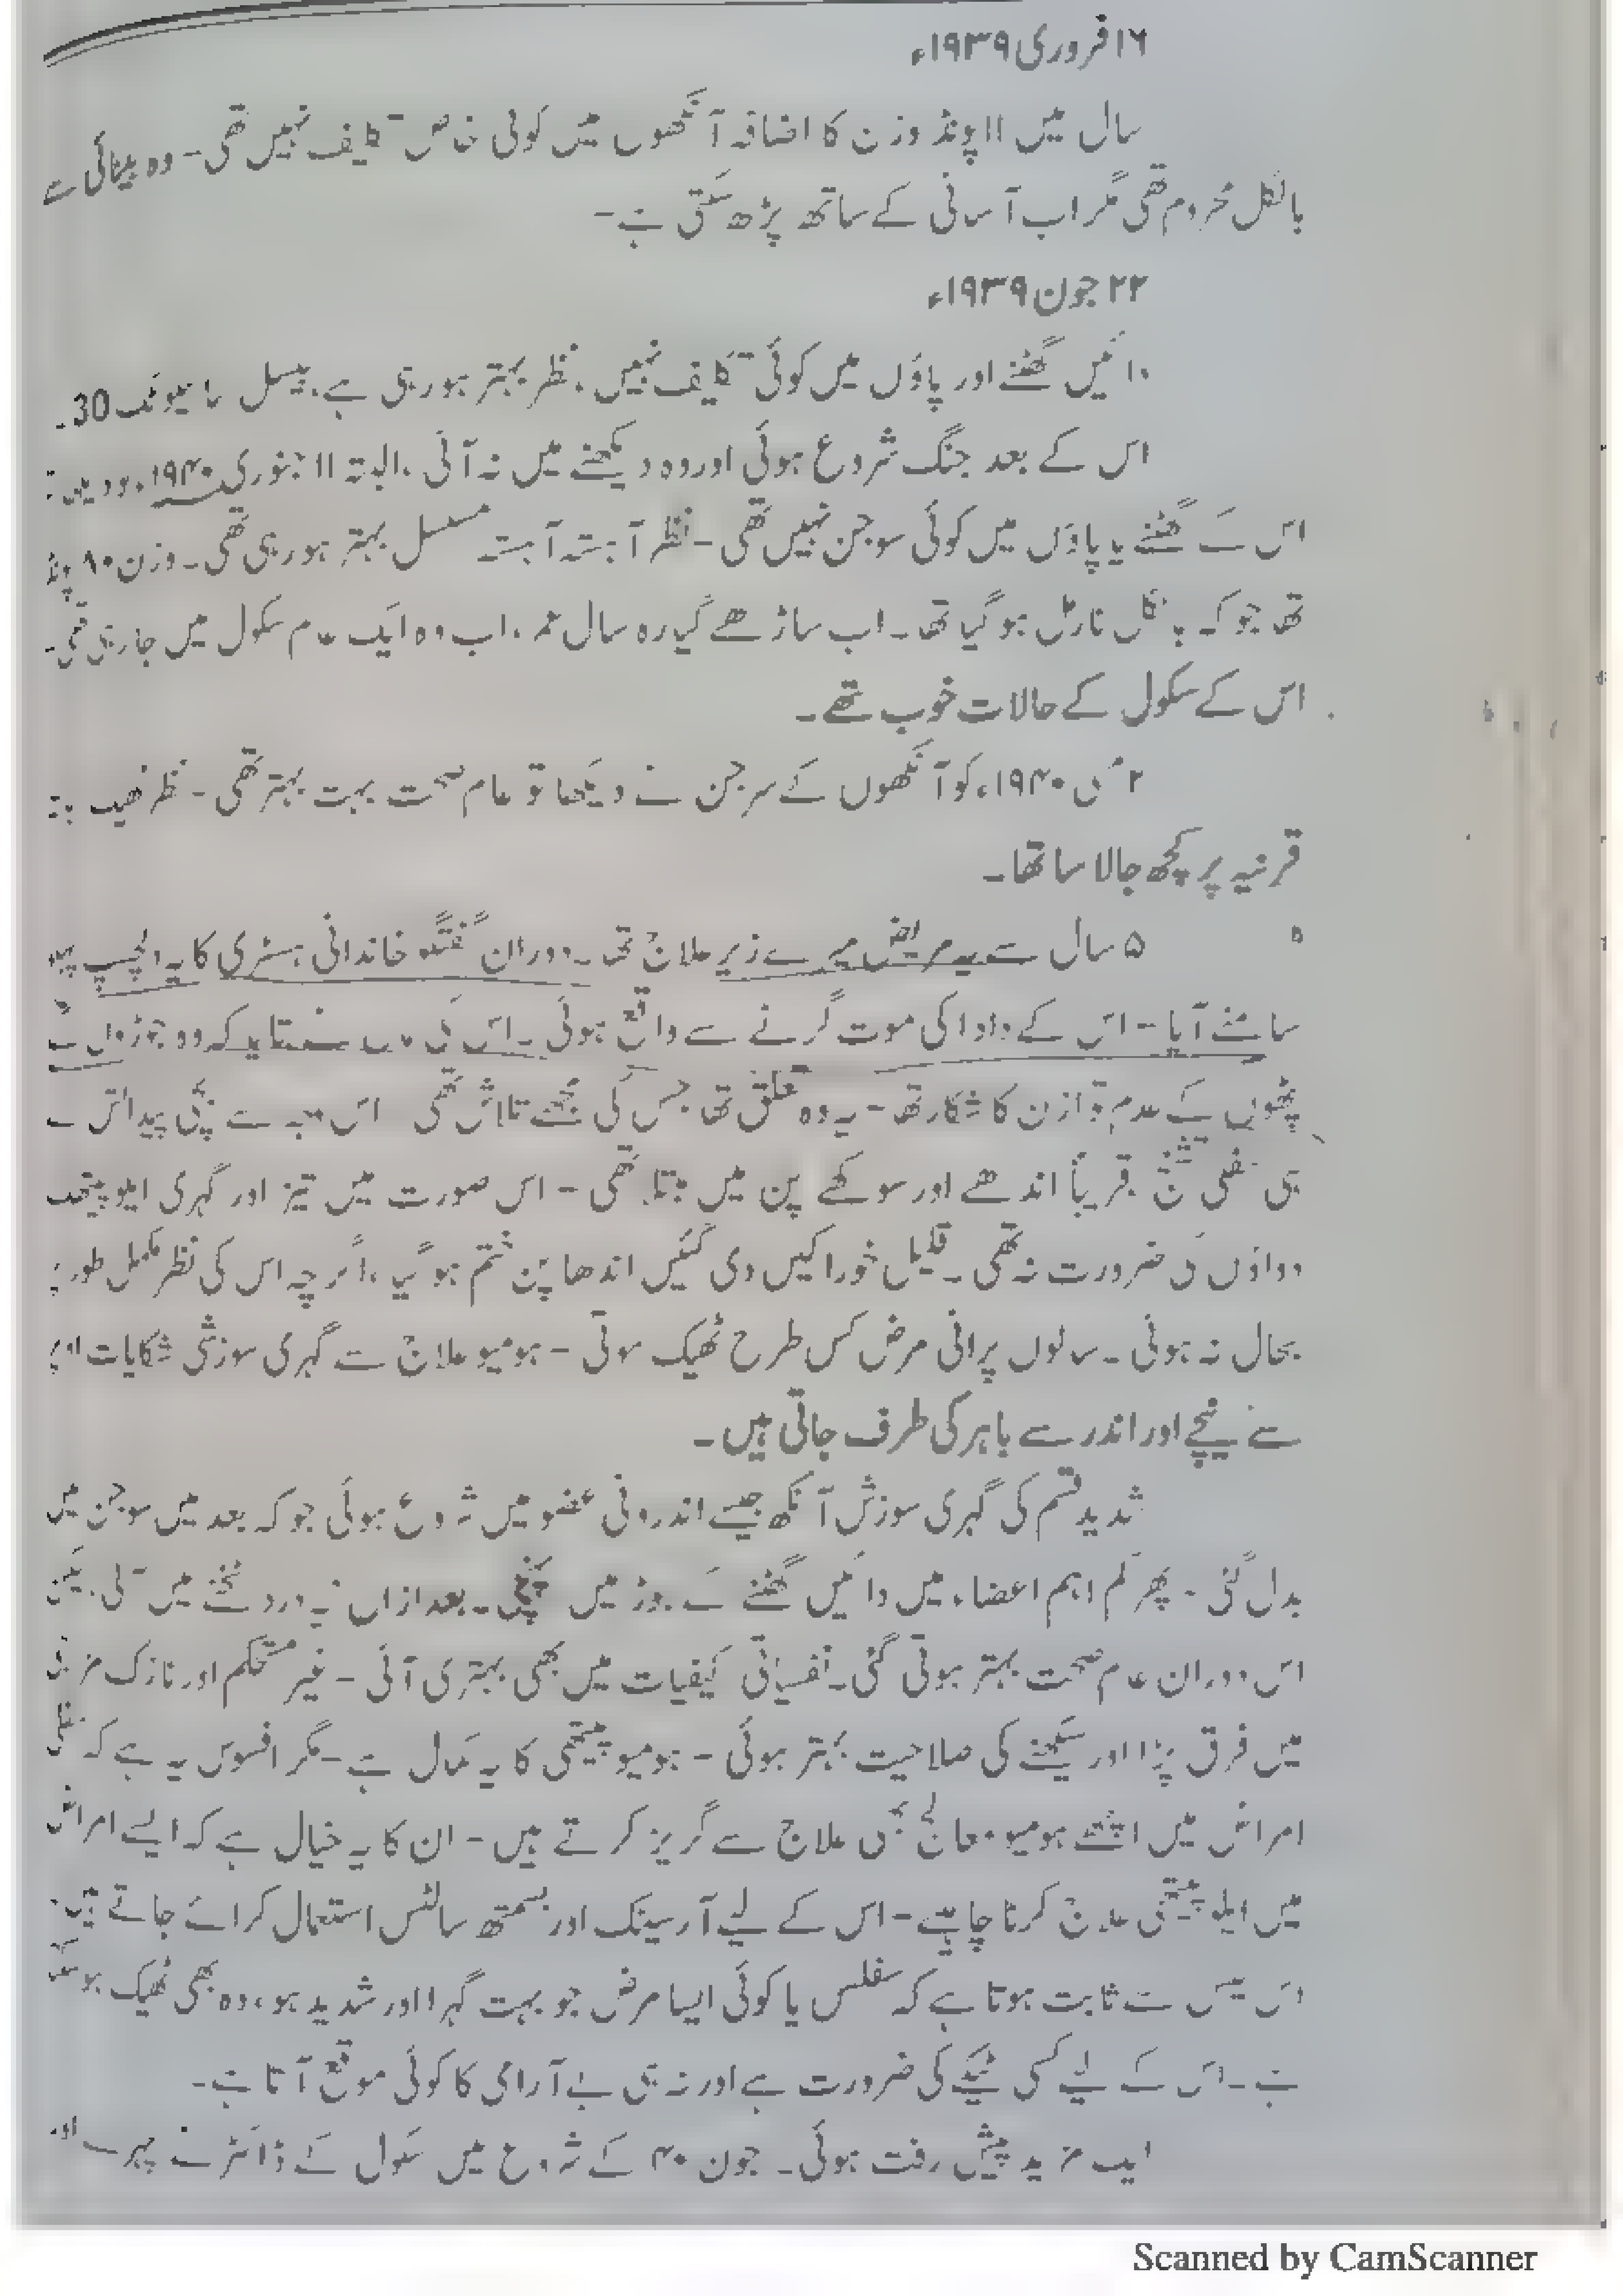 ۱۶ فروری ۱۹۳۹ء
سال میں ۱۱ پونڈ وزن کا اضافہ آنکھوں میں کوئی خاص تکلیف نہیں تھی۔ وہ بینائی سے
بالکل محروم تھی مگر اب آسانی کے ساتھ پڑھ سکتی ہے۔
۲۲ جون ۱۹۳۹ء
دائیں گھٹنے اور پاؤں میں کوئی تکلیف نہیں، نظر بہتر ہو رہی ہے، 30۔
اس کے بعد جنگ شروع ہوئی اور وہ دیکھنے میں نہ آئی، البتہ ۱۱ جنوری ۱۹۴۰ء
اس کے گھٹنے یا پاؤں میں کوئی سوجن نہیں تھی۔ نظر آہستہ آہستہ مسلسل بہتر ہو رہی تھی۔ وزن ۸۰ پونڈ
تھا جو کہ بالکل نارمل ہو گیا تھا۔ اب ساڑھے گیارہ سال عمر، اب وہ ایک عام سکول میں جا رہی تھی۔
اس کے سکول کے حالات خوب تھے۔
۲ مئی ۱۹۴۰ء کو آنکھوں کے سرجن نے دیکھا تو عام صحت بہت بہتر تھی۔ نظر ٹھیک
قرنیہ پر کچھ جالا سا تھا۔
۵ سال سے یہ مریض میرے زیر علاج تھی۔ دوران گفتگو خاندانی ہسٹری کا یہ دلچسپ پہلو
سامنے آیا۔ اس کے دادا کی موت گرنے سے واقع ہوئی۔ اس کی ماں نے بتایا کہ وہ جوڑوں کے
پٹھوں کے عدم توازن کا شکار تھا۔ یہ وہ تعلق تھا جس کی مجھے تلاش تھی اس وجہ سے بچی پیدائش سے
ہی تقریباً اندھے اور سوکھے پن میں مبتلا تھی۔ اس صورت میں تیز اور گہری ایلوپیتھک
دواؤں کی ضرورت نہ تھی۔ قلیل خوراکیں دی گئیں اندھا پن ختم ہو گیا، اگرچہ اس کی نظر مکمل طور پر
بحال نہ ہوئی۔ سالوں پرانی مرض کس طرح ٹھیک ہوتی۔ ہومیو علاج سے گہری سوزشی شکایات اوپر
سے نیچے اور اندر سے باہر کی طرف جاتی ہیں۔
شدید قسم کی گہری سوزش آنکھ جیسے اندرونی عضو میں شروع ہوئی جو کہ بعد میں سوجن میں
بدل گئی۔ پھر کم اہم اعضاء میں دائیں گھٹنے کے جوڑ میں پہنچی۔ بعد ازاں یہ درد ٹخنے میں آئی، لیکن
اس دوران عام صحت بہتر ہوتی گئی۔ نفسیاتی کیفیات میں بھی بہتری آئی۔ غیر مستحکم اور نازک مزاجی
میں فرق پڑا اور سیکھنے کی صلاحیت بہتر ہوئی۔ ہومیوپیتھی کا یہ کمال ہے۔ مگر افسوس یہ ہے کہ
امراض میں اچھے ہومیو معالج بھی علاج سے گریز کرتے ہیں۔ ان کا یہ خیال ہے کہ ایسے امراض
میں ایلوپیتھی علاج کرنا چاہیے۔ اس کے لیے آرسینک اور بسمتھ سالٹس استعمال کرائے جاتے ہیں۔
اس کیس سے ثابت ہوتا ہے کہ سفلس یا کوئی ایسا مرض جو بہت گہرا اور شدید ہو، وہ بھی ٹھیک ہو سکتا
ہے۔ اس کے لیے کسی ٹیکے کی ضرورت ہے اور نہ ہی بے آرامی کا کوئی موقع آتا ہے۔
ایک مزید پیش رفت ہوئی۔ جون ۴۰ کے شروع میں سکول کے ڈاکٹر نے
Scanned by CamScanner